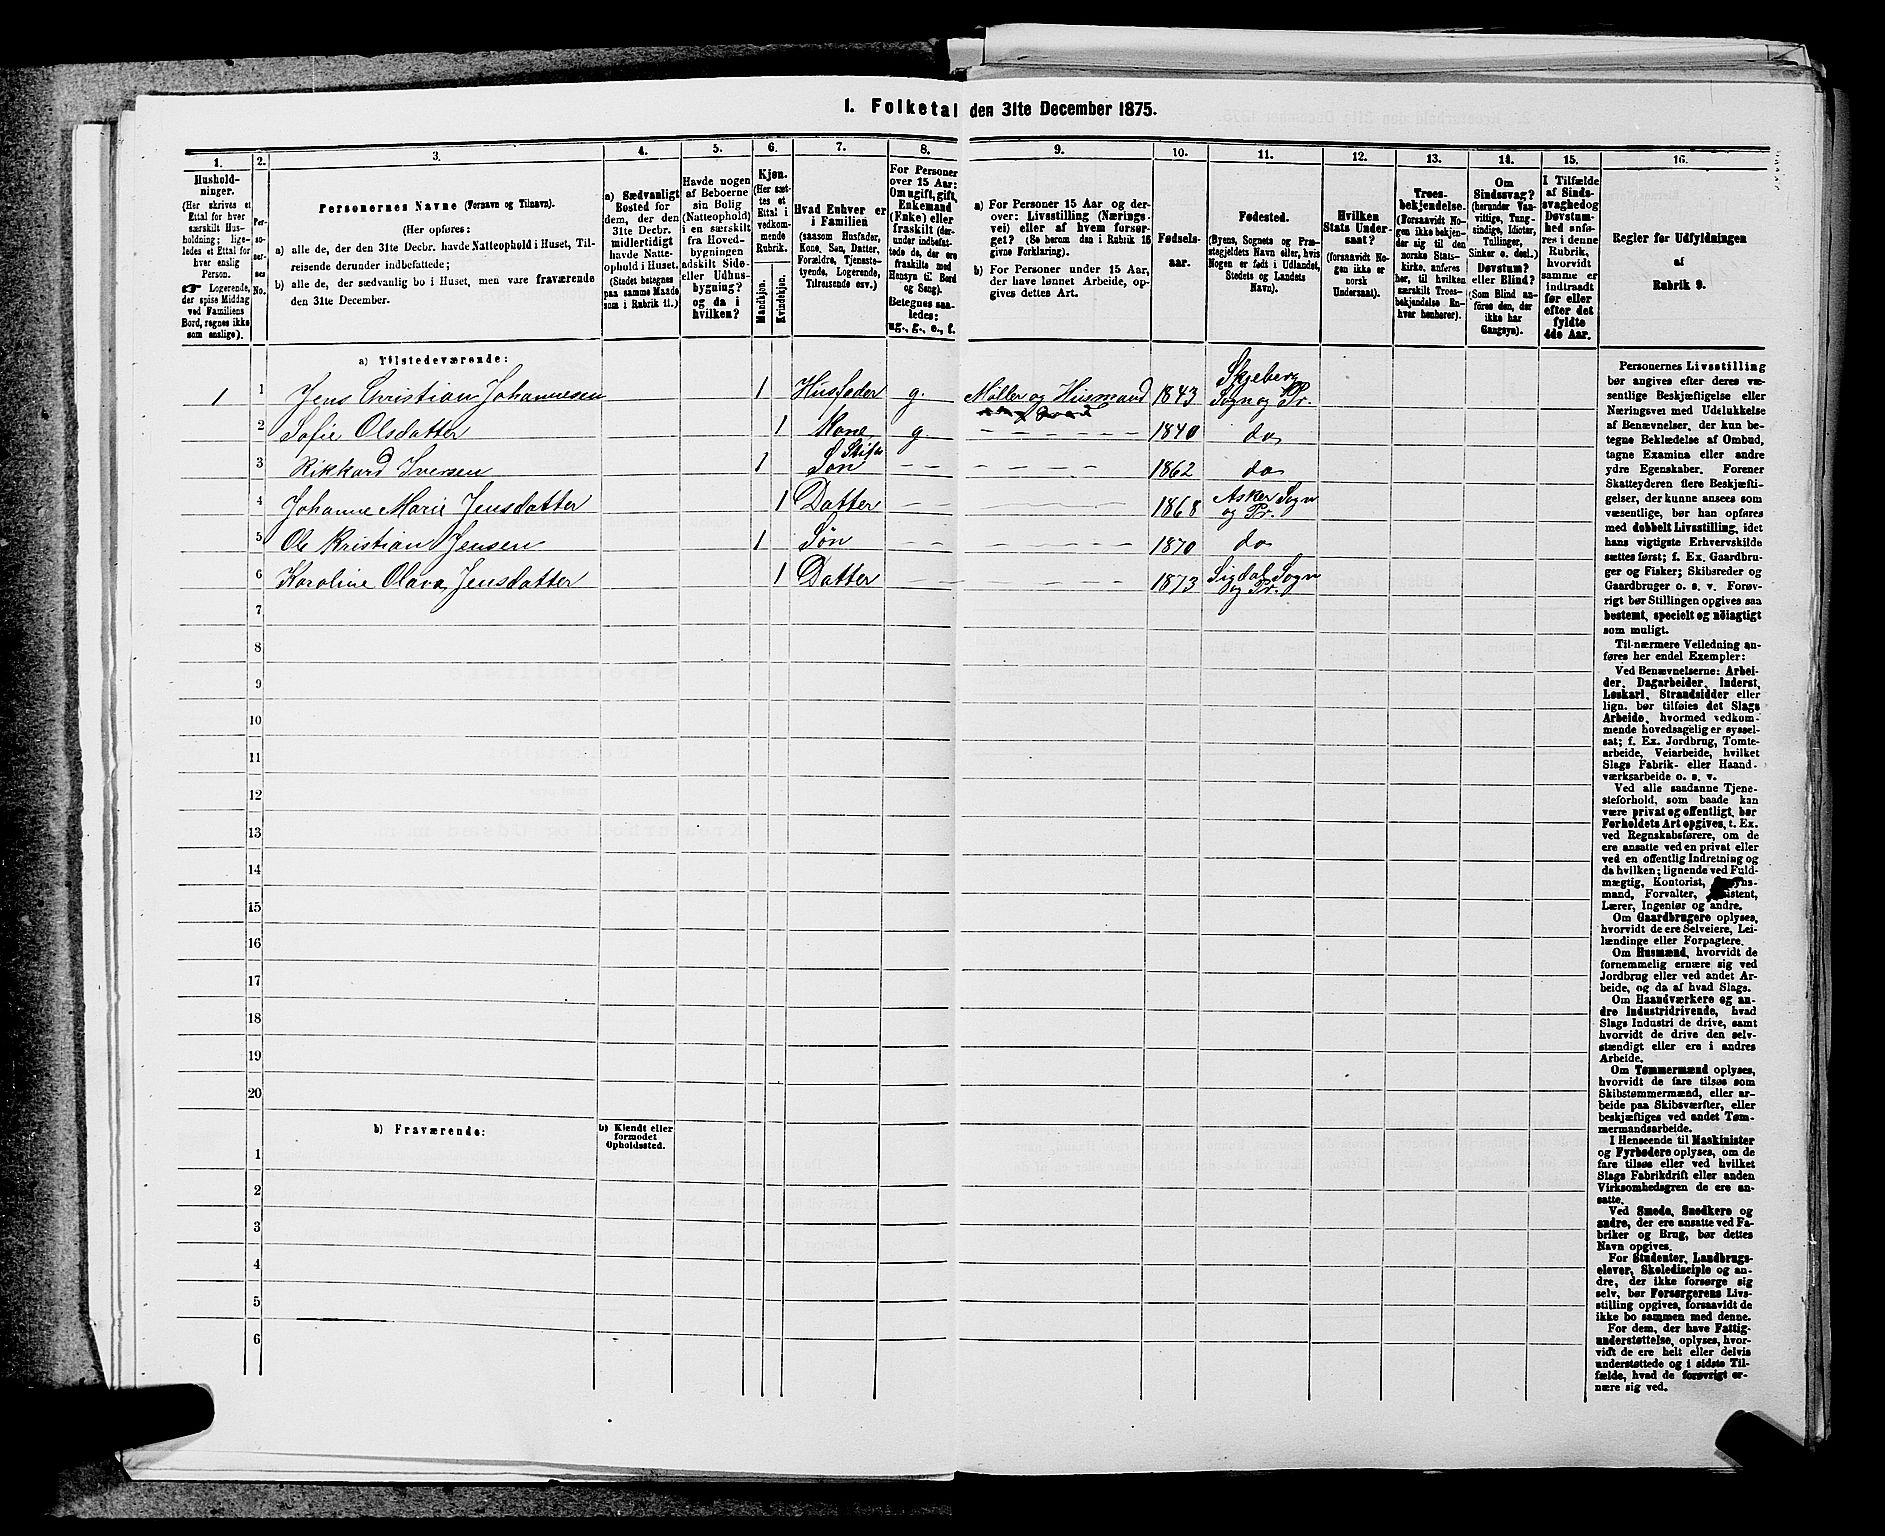 1. Folketal den 31te December 1875.
1. 2. 3. 4. 5. 6. 7. 8. 9. 10. 11. 12. 13. 14. 15. 16.
Hushold-
ninger.
(Her skrives et
Ettal for hver
særskilt Hus-
holdning; lige-
ledes et Ettal for
hver enslig
Person.
☛ Logerende,
der spise Middag
ved Familiens
Bord, regnes ikke
som enslige).
Per-
so-
ner-
nes
No.
Personernes Navne (Fornavn og Tilnavn).
(Her opføres:
a) alle de, der den 31te Decbr. havde Natteophold i Huset, Til-
reisende derunder indbefattede;
b) alle de, der sædvanlig bo i Huset, men vare fraværende
den 31te December.
a) Sædvanligt
Bosted for
dem, der den
31te Decbr.
midlertidigt
havde Natte-
ophold i Huset.
(Stedet betegnes
paa samme Maade
som i Rubrik 11.)
Havde nogen
af Beboerne
sin Bolig
(Natteophold)
i en særskilt
fra Hoved-
bygningen
adskilt Side-
eller Udhus-
bygning?
og da i
hvilken?
Kjøn.
(Her sæt-
tes et
Ettal i
vedkom-
mende
Rubrik.
Mandkjøn.
Kvindekjøn.
Hvad Enhver er
i Familien
(saasom Husfader,
Kone, Søn, Datter,
Forældre, Tjeneste-
tyende, Logerende,
Tilreisende osv.)
For Personer
over 15 Aar:
Om ugift, gift,
Enkemand
(Enke) eller
fraskilt (der-
under indbefat-
tede de, der ere
fraskilte med
Hensyn til Bord
og Seng).
Betegnes saa-
ledes:
ug., g., e., f.
a) For Personer 15 Aar og der-
over: Livsstilling (Nærings-
vei) eller af hvem forsør-
get? (Se herom den i Rubrik 16
givne Forklaring).
b) For Personer under 15 Aar,
der have lønnet Arbeide, op-
gives dettes Art.
Fødsels-
aar.
Fødested.
(Byens, Sognets og Præ-
stegjeldets Navn eller, hvis
Nogen er født i Udlandet,
Stedets og Landets
Navn).
Hvilken
Stats Under-
saat?
(forsaavidt No-
gen ikke er
norsk
Undersaat).
Troes-
bekjendelse.
(Forsaavidt No-
gen ikke bekjen-
der sig til den
norske Stats-
kirke, anføres
her, til hvilken
særskilt Troes-
bekjendelse En-
hver henhører).
Om
Sindssvag?
(herunder Van-
vittige, Tung-
sindige, Idioter,
Tullinger,
Sinker o. desl.).
Døvstum?
eller Blind?
(Som Blind an-
føres den, der
ikke har
Gangsyn).
I Tilfælde
af Sinds-
svaghed og
Døvstum-
hed anfø-
res i denne
Rubrik,
hvorvidt
samme er
indtraadt
før eller
efter det
fyldte
4de Aar.
Regler for Udfyldningen
af
Rubrik 9.
a) Tilstedeværende:
1 1 Jens Christian Johannesen 1 Husfader g. Møller og Husmand 1843 Skjeberg Sogn og Pr.
2 Sofie Olsdatter 1 Kone g. 1840 do
3 Rikkard Iversen 1 Stif Søn 1862 do
4 Johanne Marie Jensdatter 1 Datter 1868 Asker Sogn og Pr.
5 Ole Kristian Jensen 1 Søn 1870 do
6 Karoline Olava Jensdatter 1 Datter 1873 Sigdal Sogn og Pr.
7
8
9
10
11
12
13
14
15
16
17
18
19
20
b) Fraværende:
b) Kjendt eller
formodet
Opholdssted.
1
2
3
4
5
6
Personernes Livsstilling
bør angives efter deres væ-
sentlige Beskjæftigelse eller
Næringsvei med Udelukkelse
af Benævnelser, der kun be-
tegne Beklædelse af Ombud,
tagne Examina eller andre
ydre Egenskaber. Forener
Skatteyderen flere Beskjæfti-
gelser, der kunne ansees som
væsentlige, bør han opføres
med dobbelt Livsstilling, idet
hans vigtigste Erhvervskilde
sættes først; f. Ex. Gaardbru-
ger og Fisker; Skibsreder og
Gaardbruger o. s. v. Forøv-
rigt bør Stillingen opgives saa
bestemt, specielt og nøiagtigt
som muligt.
Til nærmere Veiledning an-
føres her endel Exempler:
Ved Benævnelserne: Arbei-
der, Dagarbeider, Inderst,
Løskarl, Strandsidder eller
lign. bør tilføies det Slags
Arbeide, hvormed vedkom-
mende hovedsagelig er syssel-
sat; f. Ex. Jordbrug, Tomte-
arbeide, Veiarbeide, hvilket
Slags Fabrik- eller Haand-
værksarbeide o. s. v.
Ved alle saadanne Tjene-
steforhold, som baade kan
være privat og offentligt, bør
Forholdets Art opgives, t. Ex.
ved Regnskabsførere, om de
ere ansatte ved en privat eller
ved en offentlig Indretning og
da hvilken; lignende ved Fuld-
mægtig, Kontorist,
mand, Forvalter,
Lærer, Ingeniør og andre.
Om Gaardbrugere oplyses,
hvorvidt de ere Selveiere, Lei-
lændinge eller Forpagtere.
Om Husmænd, hvorvidt de
fornemmelig ernære sig ved
Jordbrug eller ved andet Ar-
beide, og da af hvad Slags.
Om Haandværkere og an-
dre Industridrivende, hvad
Slags Industri de drive, samt
hvorvidt de drive den selv-
stændigt eller ere i andres
Arbeide.
Om Tømmermænd oplyses,
hvorvidt de fare tilsøs som
Skibstømmermænd, eller ar-
beide paa Skibsværfter, eller
beskjæftiges ved andet Tøm-
mermandsarbeide.
I Henseende til Maskinister
og Fyrbødere oplyses, om de
fare tilsøs eller ved hvilket
Slags Fabrikdrift eller anden
Virksomhedsgren de ere an-
satte.
Ved Smede, Snedkere og
andre, der ere ansatte ved Fa-
briker og Brug, bør dettes
Navn opgives.
For Studenter, Landbrugs-
elever, Skoledisciple og an-
dre, der ikke forsørge sig
selv, bør Forsørgerens Livs-
stilling opgives, forsaavidt de
ikke bo sammen med denne.
For dem, der have Fattig-
understøttelse, oplyses, hvor-
vidt de ere helt eller delvis
understøttede og i sidste Til-
fælde, hvad de forøvrigt er-
nære sig ved.